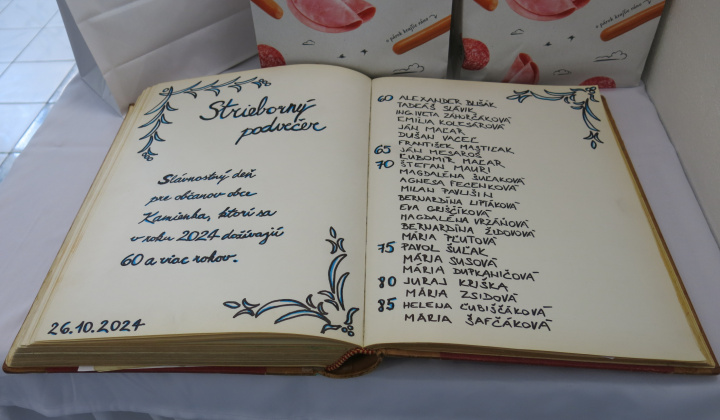 Strieborný
podvečer
Slávnostný deň
pre občanov obce
Kamienka, ktorí sa
v roku 2024 dožívajú
60 a viac rokov.
26.10.2024
60 ALEXANDER DUŠÁK
TADEÁŠ SLÁVIK
ING. IVETA ZÁHORČÁKOVÁ
EMÍLIA KOLESÁROVÁ
JÁN MAĽAR
DUŠAN VACEĽ
FRANTIŠEK MASTIĽAK
65 JÁN MESAROŠ
ĽUBOMÍR MAĽAR
70 ŠTEFAN MAURI
MAGDALÉNA ŠUĽAKOVÁ
AGNESA FECENKOVÁ
MILAN PAVLIŠIN
BERNARDÍNA LIPTÁKOVÁ
EVA GRIŠČÍKOVÁ
MAGDALÉNA VRZÁŇOVÁ
BERNARDÍNA ŽIDOVOVÁ
MÁRIA PĽUTOVÁ
75 PAVOL ŠUĽAK
MÁRIA SUSOVÁ
MÁRIA DUPKANIČOVÁ
80 JURAJ KRIŠKA
MÁRIA ZSIDOVÁ
85 HELENA ĽUBIŠČÁKOVÁ
MÁRIA ŠAFČÁKOVÁ